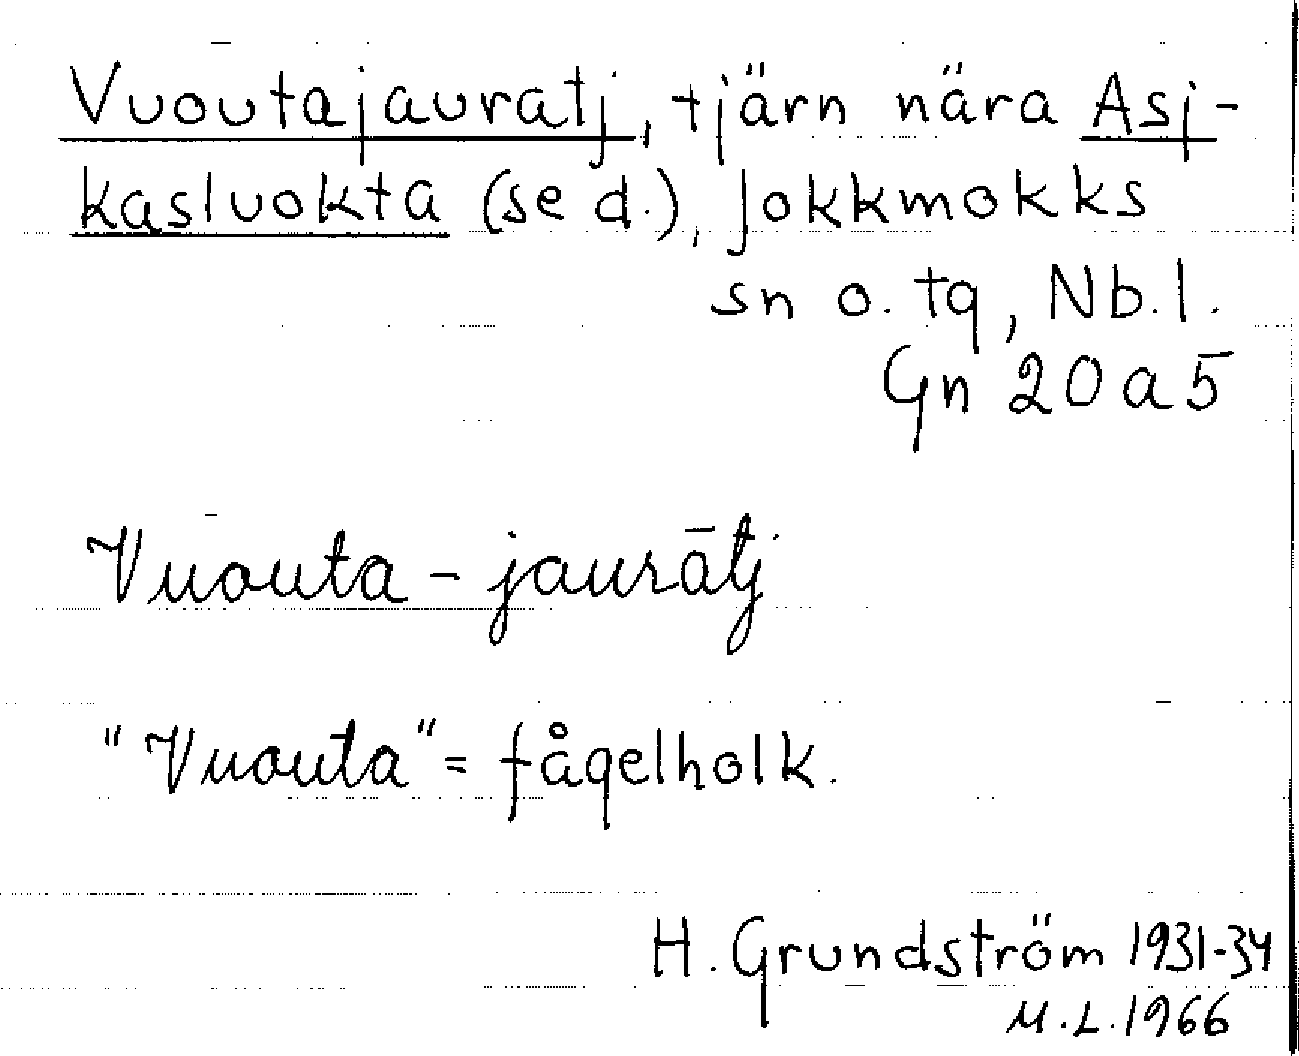 Vuoutajauratj, tjärn nära Asj-
kasluokta (se d.), Jokkmokks
sn o. tg, Nb. l.
Gn 20 a 5
Vuouta - jaurātj
"Vuouta" = fågelholk.
H. Grundström 1931-34
M.L. 1966